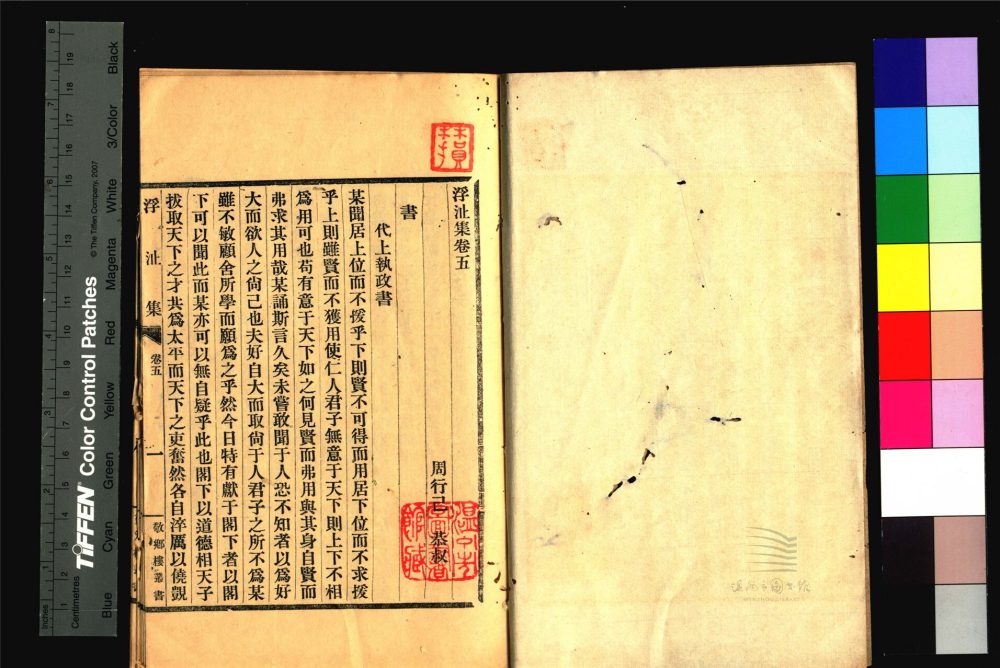 浮沚集卷五
周行己 恭叔
書
代上執政書
某聞居上位而不援乎下則賢不可得而用居下位而不求援
乎上則雖賢而不獲用使仁人君子無意于天下則上下不相
爲用可也苟有意于天下如之何見賢而弗用與其身自賢而
弗求其用哉某誦斯言久矣未嘗敢聞于人恐不知者以爲好
大而欲人之尙己也夫好自大而取尙于人君子之所不爲某
雖不敏顧舍所學而願爲之乎然今日特有獻于閣下者以閣
下可以聞此而某亦可以無自疑乎此也閣下以道德相天子
拔取天下之才共爲太平而天下之吏奮然各自淬厲以僥覬
浮沚集 卷五 一 敬鄉樓叢書
Inches
Centimetres
TIFFEN® Color Control Patches
© The Tiffen Company, 2007
Blue Cyan Green Yellow Red Magenta White 3/Color Black
溫州市圖書館